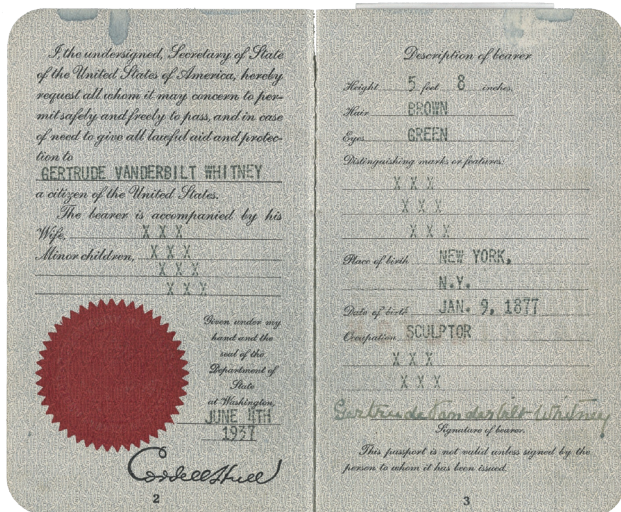 I, the undersigned, Secretary of State
of the United States of America, hereby
request all whom it may concern to per-
mit safely and freely to pass, and in case
of need to give all lawful aid and protec-
tion to
GERTRUDE VANDERBILT WHITNEY
a citizen of the United States.
The bearer is accompanied by his
Wife, X X X
Minor children, X X X
X X X
X X X
Given under my
hand and the
seal of the
Department of
State
at Washington,
JUNE 11TH
1937
Cordell Hull
2
Description of bearer
Height 5 feet 8 inches.
Hair BROWN
Eyes GREEN
Distinguishing marks or features:
X X X
X X X
X X X
Place of birth NEW YORK,
N.Y.
Date of birth JAN. 9, 1877
Occupation SCULPTOR
X X X
X X X
Gertrude Vanderbilt Whitney
Signature of bearer.
This passport is not valid unless signed by the
person to whom it has been issued.
3